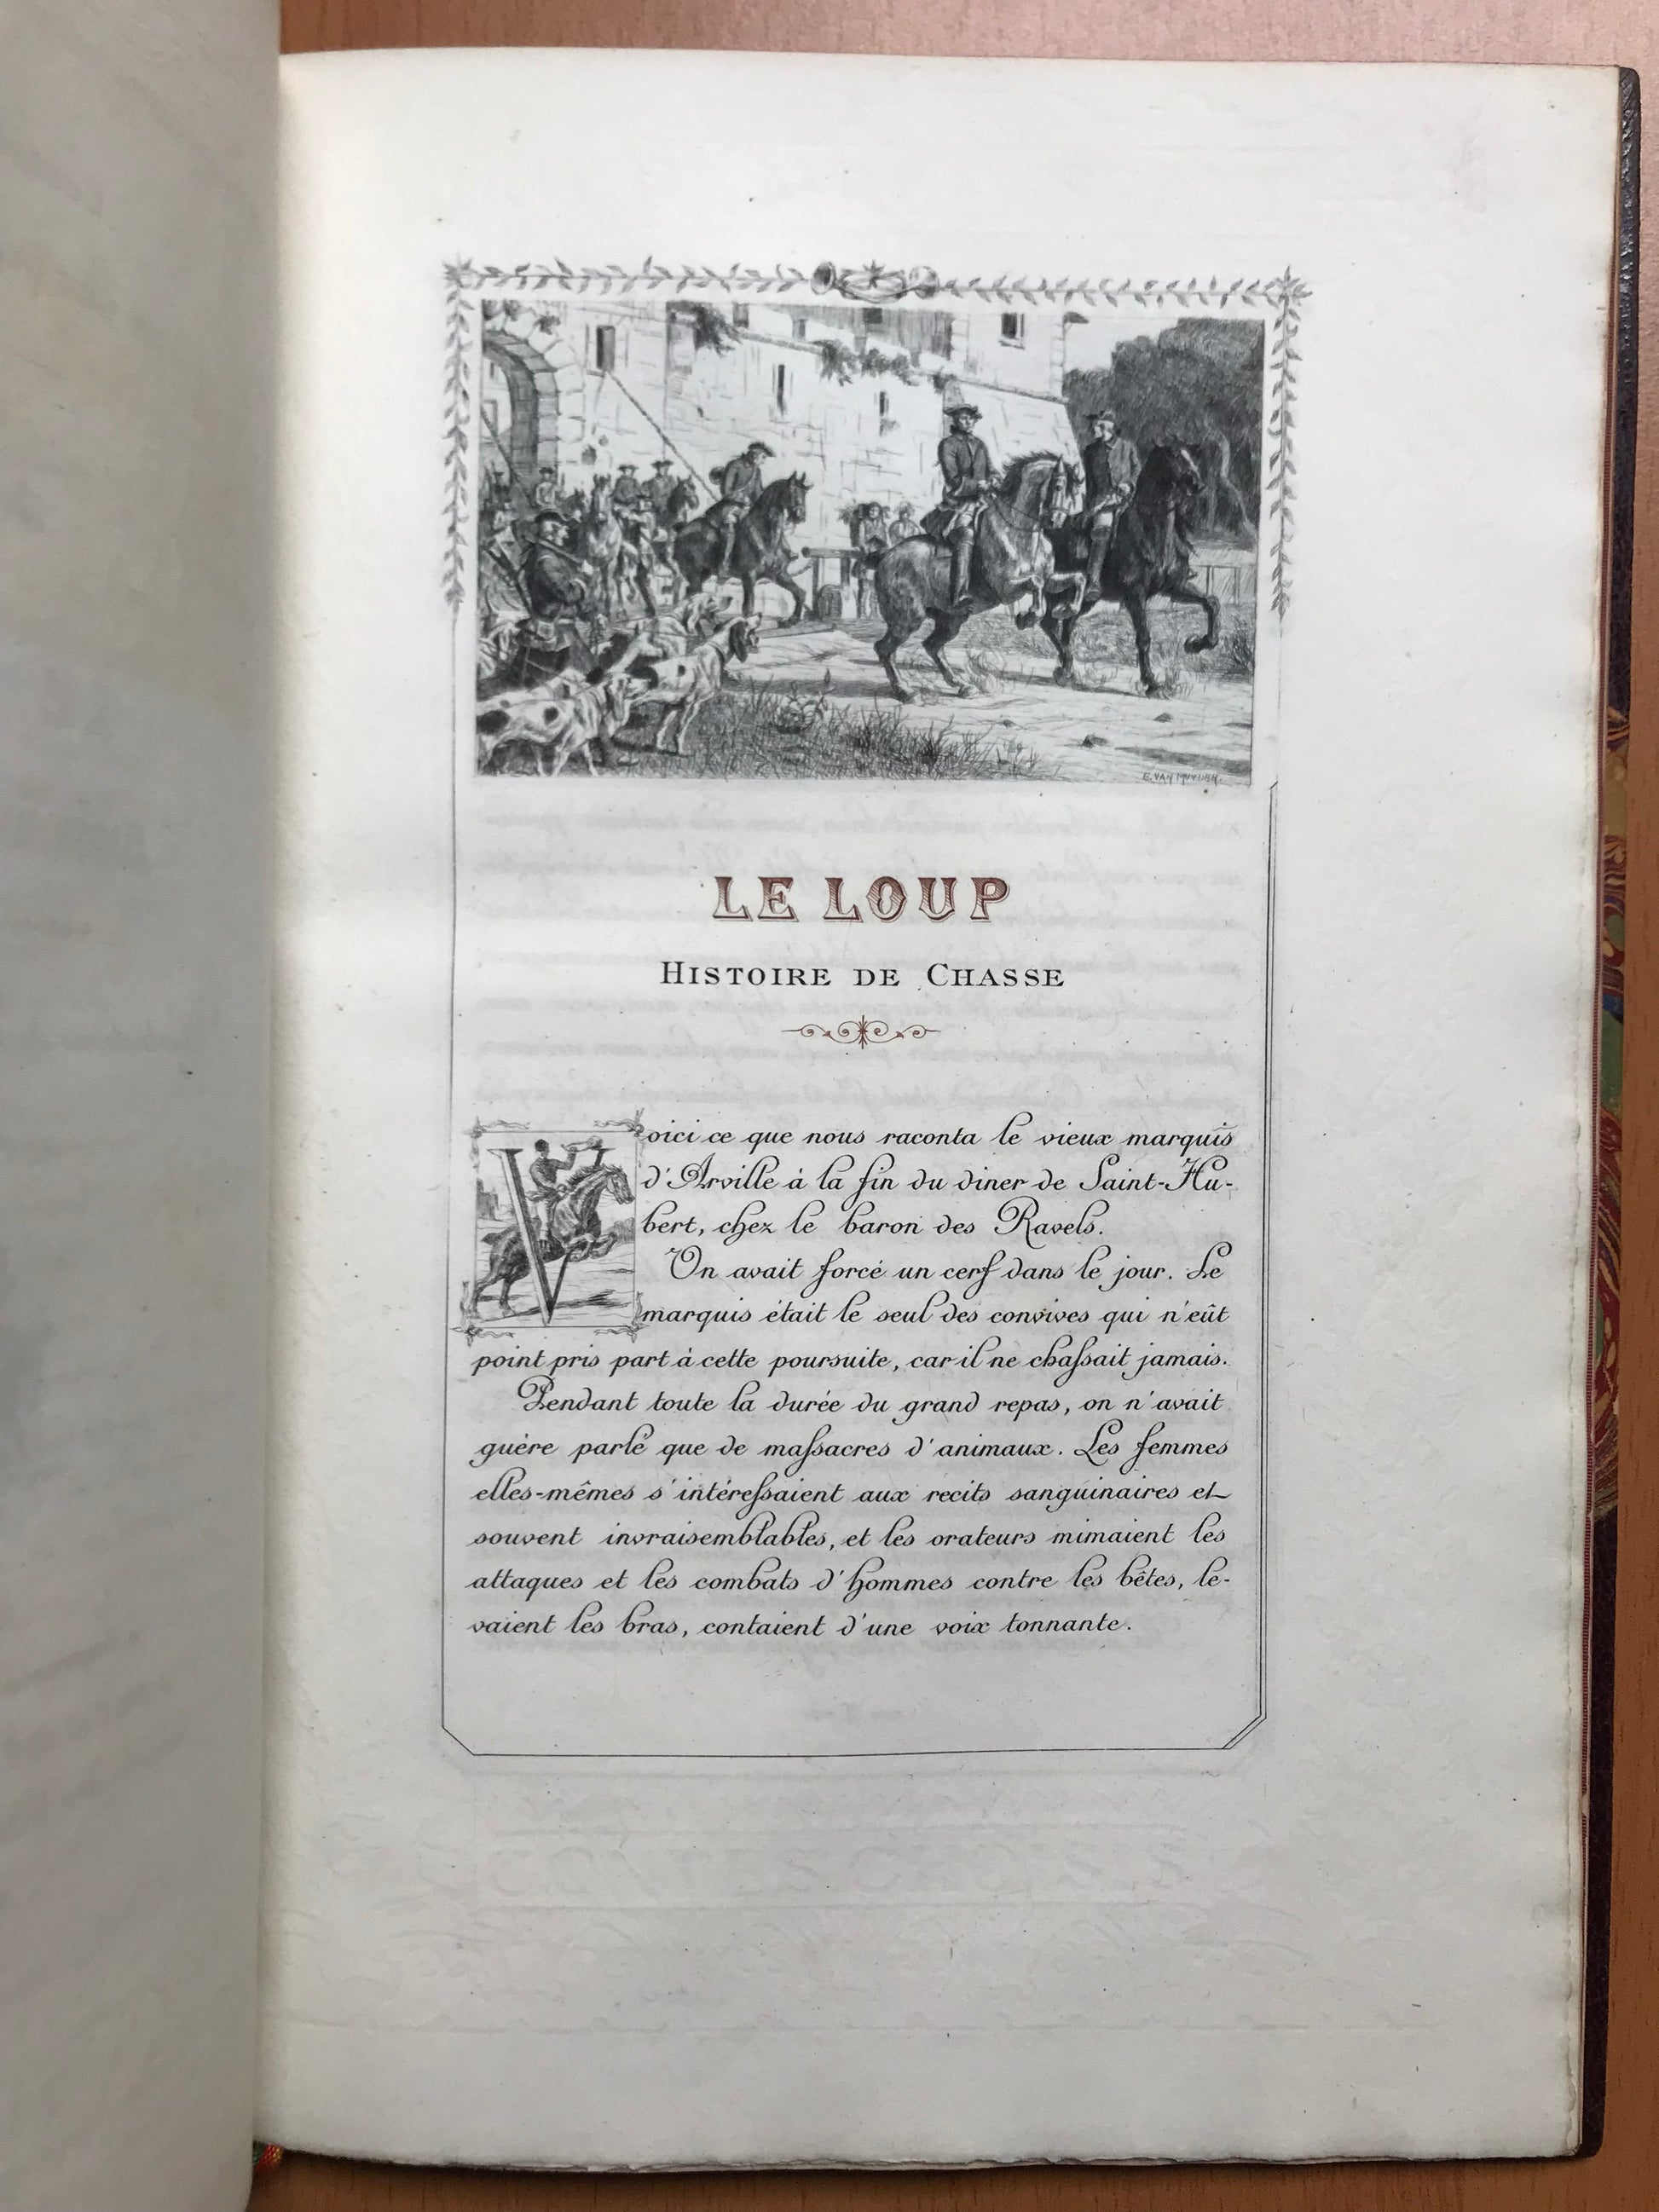 E. VAN MUYDEN.
LE LOUP
HISTOIRE DE CHASSE
Voici ce que nous raconta le vieux marquis
d'Arville à la fin du diner de Saint-Hu-
bert, chez le baron des Ravels.
On avait forcé un cerf dans le jour. Le
marquis était le seul des convives qui n'eût
point pris part à cette poursuite, car il ne chaſsait jamais.
Pendant toute la durée du grand repas, on n'avait
guère parlé que de maſsacres d'animaux. Les femmes
elles-mêmes s'intéreſsaient aux recits sanguinaires et
souvent invraisemblables, et les orateurs mimaient les
attaques et les combats d'hommes contre les bêtes, le-
vaient les bras, contaient d'une voix tonnante.